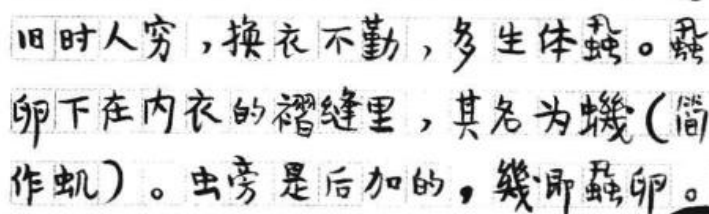 旧时人穷，换衣不勤，多生体蝨。蝨
卵下在内衣的褶缝里，其名为蟣（简
作虮）。虫旁是后加的，幾即蝨卵。